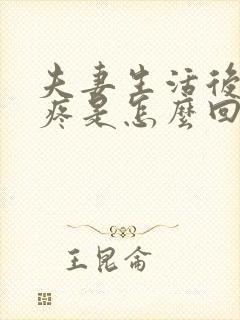 夫妻生活後
疼是怎麼回
王昆侖